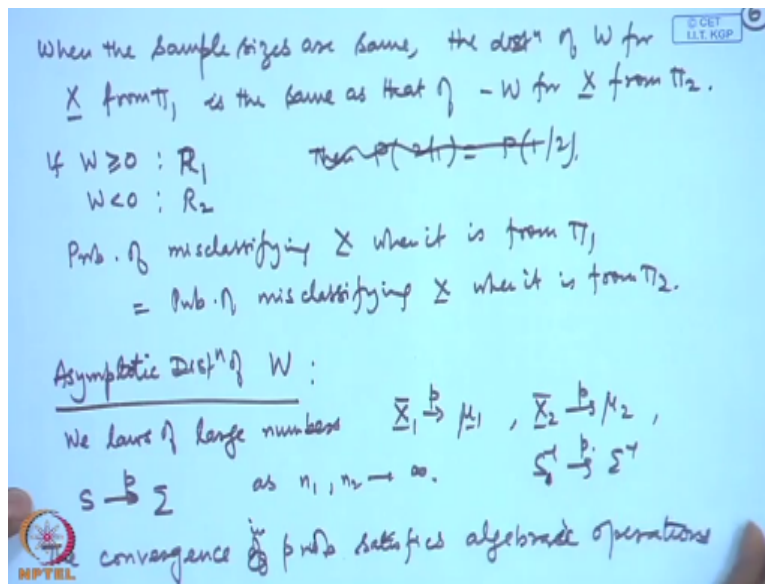 © CET
I.I.T. KGP
6
When the sample sizes are same, the distⁿ of W for
X from Π₁ is the same as that of -W for X from Π₂.
If W ≥ 0 : R₁
Then P(2/1) = P(1/2).
W < 0 : R₂
Prob. of misclassifying X when it is from Π₁
= Prob. of misclassifying X when it is from Π₂.
Asymptotic Distⁿ of W :
We laws of large numbers X̄₁ →ᵖ μ₁ , X̄₂ →ᵖ μ₂ ,
S →ᵖ Σ as n₁, n₂ → ∞. S⁻¹ →ᵖ Σ⁻¹
convergence in prob satisfies algebraic operations
NPTEL